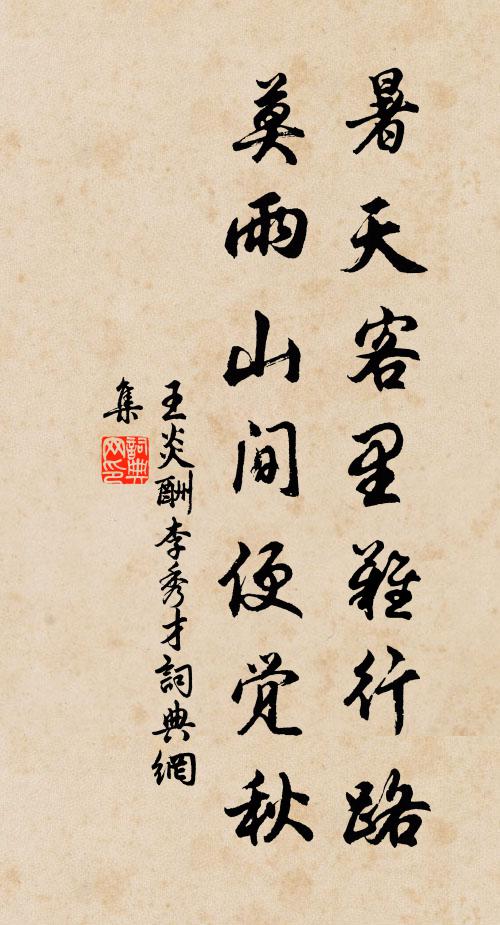 暑天客里難行路
莫雨山间便觉秋
王炎酬李秀才詞典網
集
詞典
网印